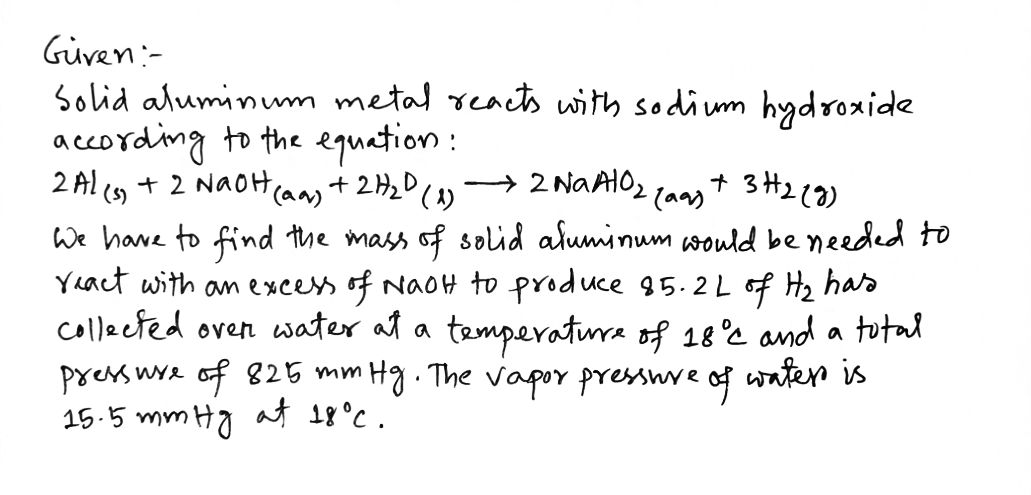 Given :-
Solid aluminum metal reacts with sodium hydroxide
according to the equation :
2 Al (s) + 2 NaOH (aq) + 2H₂O (l) → 2 NaAlO₂ (aq) + 3 H₂ (g)
We have to find the mass of solid aluminum would be needed to
react with an excess of NaOH to produce 85.2 L of H₂ has
collected over water at a temperature of 18°C and a total
pressure of 825 mmHg. The vapor pressure of water is
15.5 mmHg at 18°C.